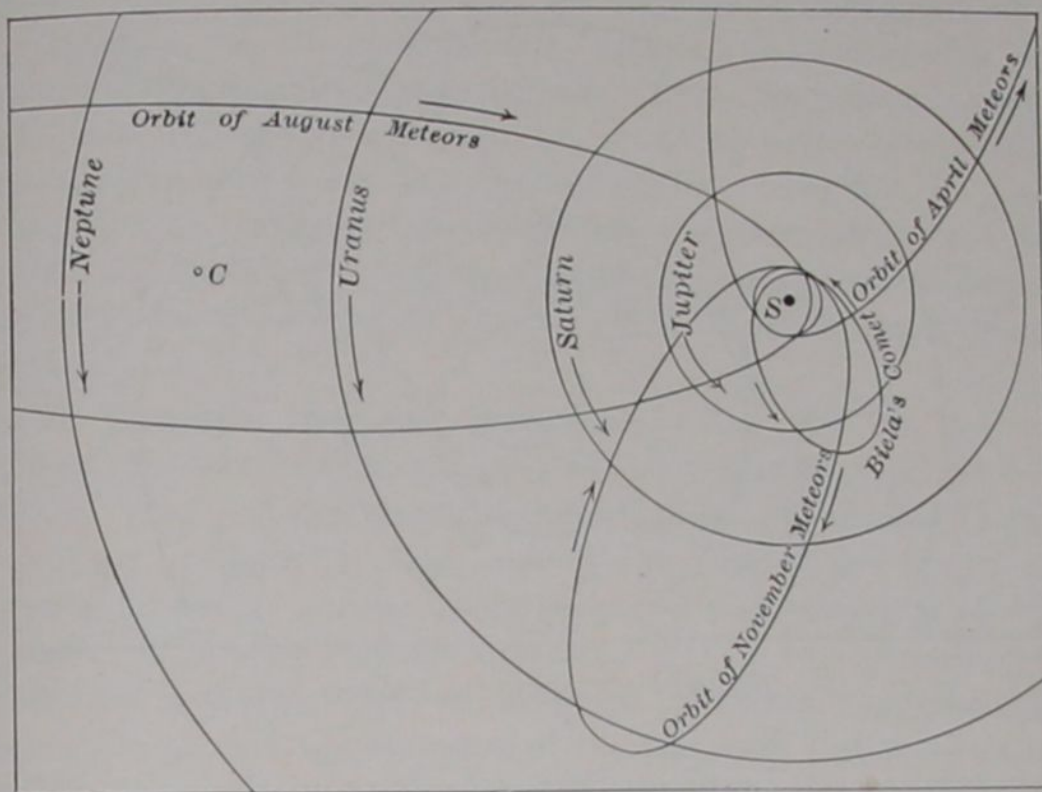 Orbit of August Meteors
Neptune
Uranus
C
Saturn
Jupiter
S
Orbit of April Meteors
Biela's Comet
Orbit of November Meteors